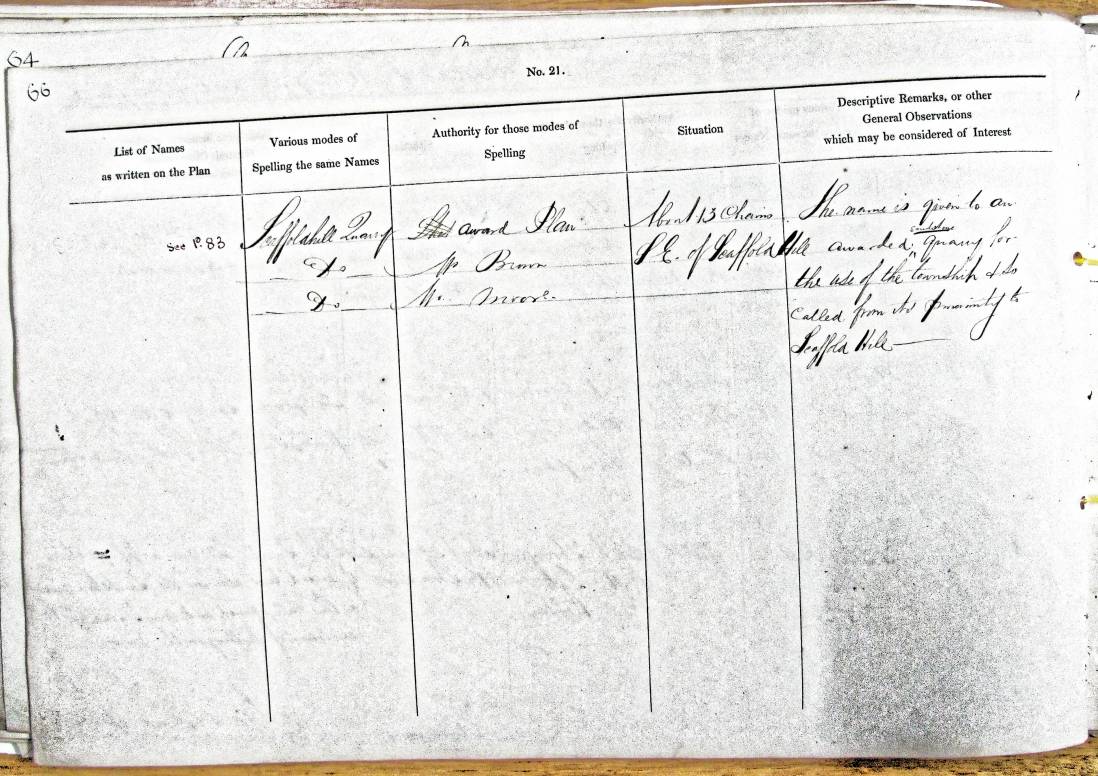 64
66
No. 21.
List of Names
as written on the Plan
Various modes of
Spelling the same Names
Authority for those modes of
Spelling
Situation
Descriptive Remarks, or other
General Observations
which may be considered of Interest
See P. 83
Scaffoldhill Quarry
Do
Do
award Plan
Mr. Brown
Mr. Moore
About 13 Chains
S.E. of Scaffold Hill
The name is given to an
awarded sandstone quarry for
the use of the township & so
called from its proximity to
Scaffold Hill